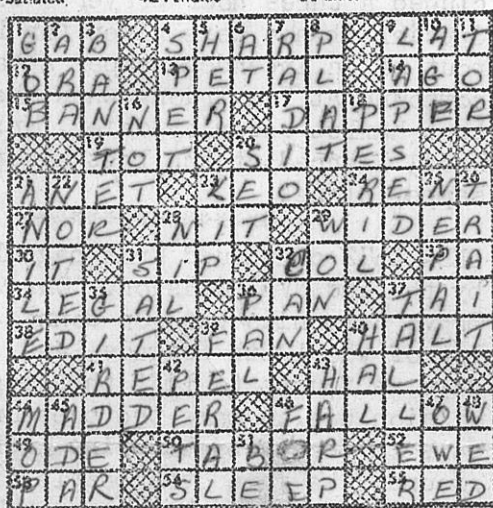 GAB SHARP LAT
ORA PETAL AGO
BANNER DAPPER
TOT SITES
ANET LEO RENT
NOR NIT WIDER
IT SIP COL PA
LEGAL PAN TAI
EDIT FAN HALT
REPEL HAL
MADDER FALLOW
ODE TABOR EWE
PAR SLEEP RED